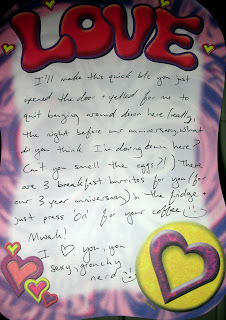 LOVE
I'll make this quick b/c you just
opened the door + yelled for me to
quit banging around down here (really,
the night before our anniversary, what
do you think I'm doing down here?
Can't you smell the eggs?!) There
are 3 breakfast burritos for you (for
our 3 year anniversary) in the fridge +
just press 'On' for your coffee!
Mwah!
I ♡ you, you
sexy, grouchy
nerd